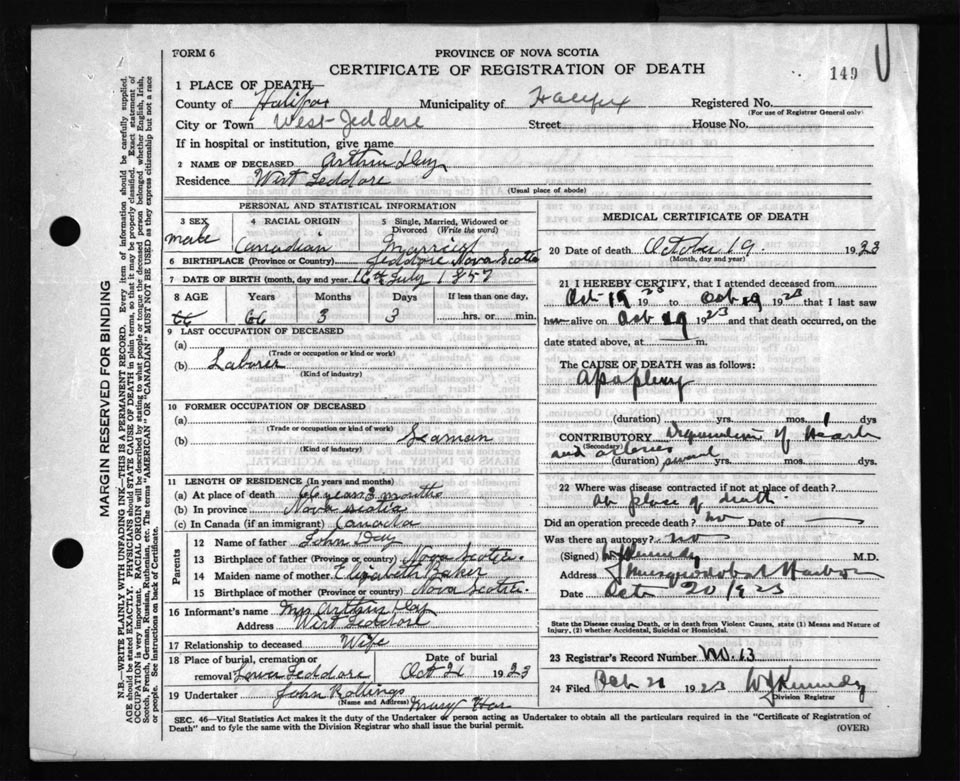 FORM 6
PROVINCE OF NOVA SCOTIA
CERTIFICATE OF REGISTRATION OF DEATH
149
1 PLACE OF DEATH—
County of Halifax Municipality of Halifax Registered No.
(For use of Registrar General only)
City or Town West Jeddore Street House No.
If in hospital or institution, give name
2 NAME OF DECEASED Arthur Day
Residence West Jeddore
(Usual place of abode)
PERSONAL AND STATISTICAL INFORMATION
3 SEX 4 RACIAL ORIGIN 5 Single, Married, Widowed or Divorced (Write the word)
Male Canadian Married
6 BIRTHPLACE (Province or Country) Jeddore Nova Scotia
7 DATE OF BIRTH (month, day and year) 16th July 1857
8 AGE Years Months Days If less than one day,
66 66 3 3 hrs. or min.
9 LAST OCCUPATION OF DECEASED
(a)
(Trade or occupation or kind or work)
(b) Laborer
(Kind of industry)
10 FORMER OCCUPATION OF DECEASED
(a)
(Trade or occupation or kind of work)
(b) Seaman
(Kind of industry)
11 LENGTH OF RESIDENCE (In years and months)
(a) At place of death 66 years 3 months
(b) In province Nova Scotia
(c) In Canada (if an immigrant) Canada
Parents
12 Name of father John Day
13 Birthplace of father (Province or country) Nova Scotia
14 Maiden name of mother Elizabeth Baker
15 Birthplace of mother (Province or country) Nova Scotia
16 Informant's name Mrs Arthur Day
Address West Jeddore
17 Relationship to deceased Wife
18 Place of burial, cremation or removal Date of burial
Lower Jeddore Oct 21 1923
19 Undertaker John Rollings
(Name and Address)
MEDICAL CERTIFICATE OF DEATH
20 Date of death October 19 1923
(Month, day and year)
21 I HEREBY CERTIFY, that I attended deceased from
Oct 19 1923 to Oct 19 1923 that I last saw
him alive on Oct 19 1923 and that death occurred, on the
date stated above, at m.
The CAUSE OF DEATH was as follows:
Apoplexy
(duration) yrs. mos. 1 dys
CONTRIBUTORY Degeneration of Heart
(Secondary)
and arteries
(duration) several yrs. mos. dys.
22 Where was disease contracted if not at place of death?
at place of death.
Did an operation precede death? no Date of
Was there an autopsy? no
(Signed) W J Kennedy M.D.
Address Musquodoboit Harbor
Date Oct 20 1923
State the Disease causing Death, or in death from Violent Causes, state (1) Means and Nature of
Injury, (2) whether Accidental, Suicidal or Homicidal.
23 Registrar's Record Number No. 13
24 Filed 1923 W J Kennedy
Division Registrar
SEC. 46—Vital Statistics Act makes it the duty of the Undertaker or person acting as Undertaker to obtain all the particulars required in the "Certificate of Registration of
Death" and to fyle the same with the Division Registrar who shall issue the burial permit. (OVER)
MARGIN RESERVED FOR BINDING
N.B.—WRITE PLAINLY WITH UNFADING INK—THIS IS A PERMANENT RECORD. Every item of information should be carefully supplied.
AGE should be stated EXACTLY. PHYSICIANS should STATE CAUSE OF DEATH in plain terms, so that it may be properly classified. Exact statement of
OCCUPATION is very important. RACIAL ORIGIN will be described by stating to what people or tongue the deceased person belonged, whether English, Irish,
Scotch, French, German, Russian, Ruthenian, etc. The terms "AMERICAN" OR "CANADIAN" MUST NOT BE USED as they express citizenship but not a race
or people. See instructions on back of Certificate.